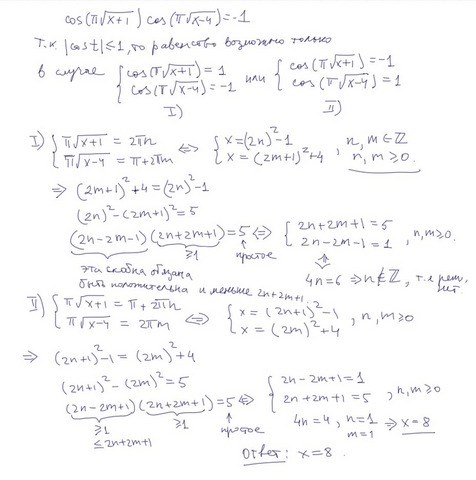 cos(π√x+1) cos(π√x-4) = -1
Т.к. |cost| ≤ 1, то равенство возможно только
в случае { cos(π√x+1) = 1 или { cos(π√x-4) = -1 I) { cos(π√x+1) = -1 { cos(π√x-4) = 1 II)
I) { π√x+1 = 2πn { π√x-4 = π+2πm ⇔ { x = (2n)²-1 { x = (2m+1)²+4 , n, m ∈ ℤ n, m ≥ 0.
⇒ (2m+1)²+4 = (2n)²-1
(2n)² - (2m+1)² = 5
(2n-2m-1) (2n+2m+1) = 5 ⇔ { 2n+2m+1 = 5 { 2n-2m-1 = 1 , n, m ≥ 0.
≥1 ↑ простое ⇓
эта скобка обязана
быть положительна и меньше 2n+2m+1.
4n = 6 ⇒ n ∉ ℤ, т.е. реш. нет
II) { π√x+1 = π+2πn { π√x-4 = 2πm ⇔ { x = (2n+1)²-1 { x = (2m)²+4 , n, m ≥ 0
⇒ (2n+1)²-1 = (2m)²+4
(2n+1)² - (2m)² = 5
(2n-2m+1) (2n+2m+1) = 5 ⇔ { 2n-2m+1 = 1 { 2n+2m+1 = 5 , n, m ≥ 0
≥1 ≥1 ↑
≤ 2n+2m+1 простое
4n = 4, n = 1 m = 1 ⇒ x = 8
Ответ: x = 8.